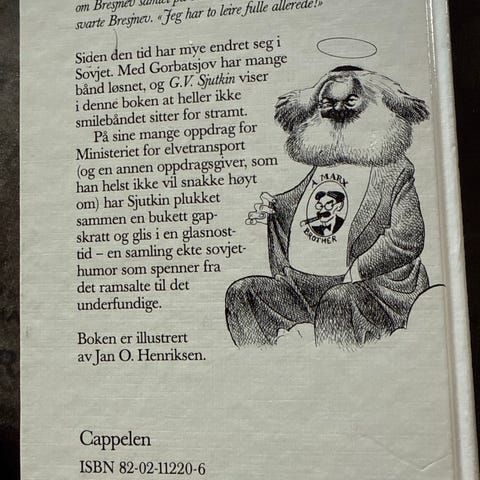 om Bresjnev samlet på
svarte Bresjnev. «Jeg har to leire fulle allerede!»
Siden den tid har mye endret seg i
Sovjet. Med Gorbatsjov har mange
bånd løsnet, og G.V. Sjutkin viser
i denne boken at heller ikke
smilebåndet sitter for stramt.
På sine mange oppdrag for
Ministeriet for elvetransport
(og en annen oppdragsgiver, som
han helst ikke vil snakke høyt
om) har Sjutkin plukket
sammen en bukett gap-
skratt og glis i en glasnost-
tid – en samling ekte sovjet-
humor som spenner fra
det ramsalte til det
underfundige.
A MARX
BROTHER
Boken er illustrert
av Jan O. Henriksen.
Cappelen
ISBN 82-02-11220-6